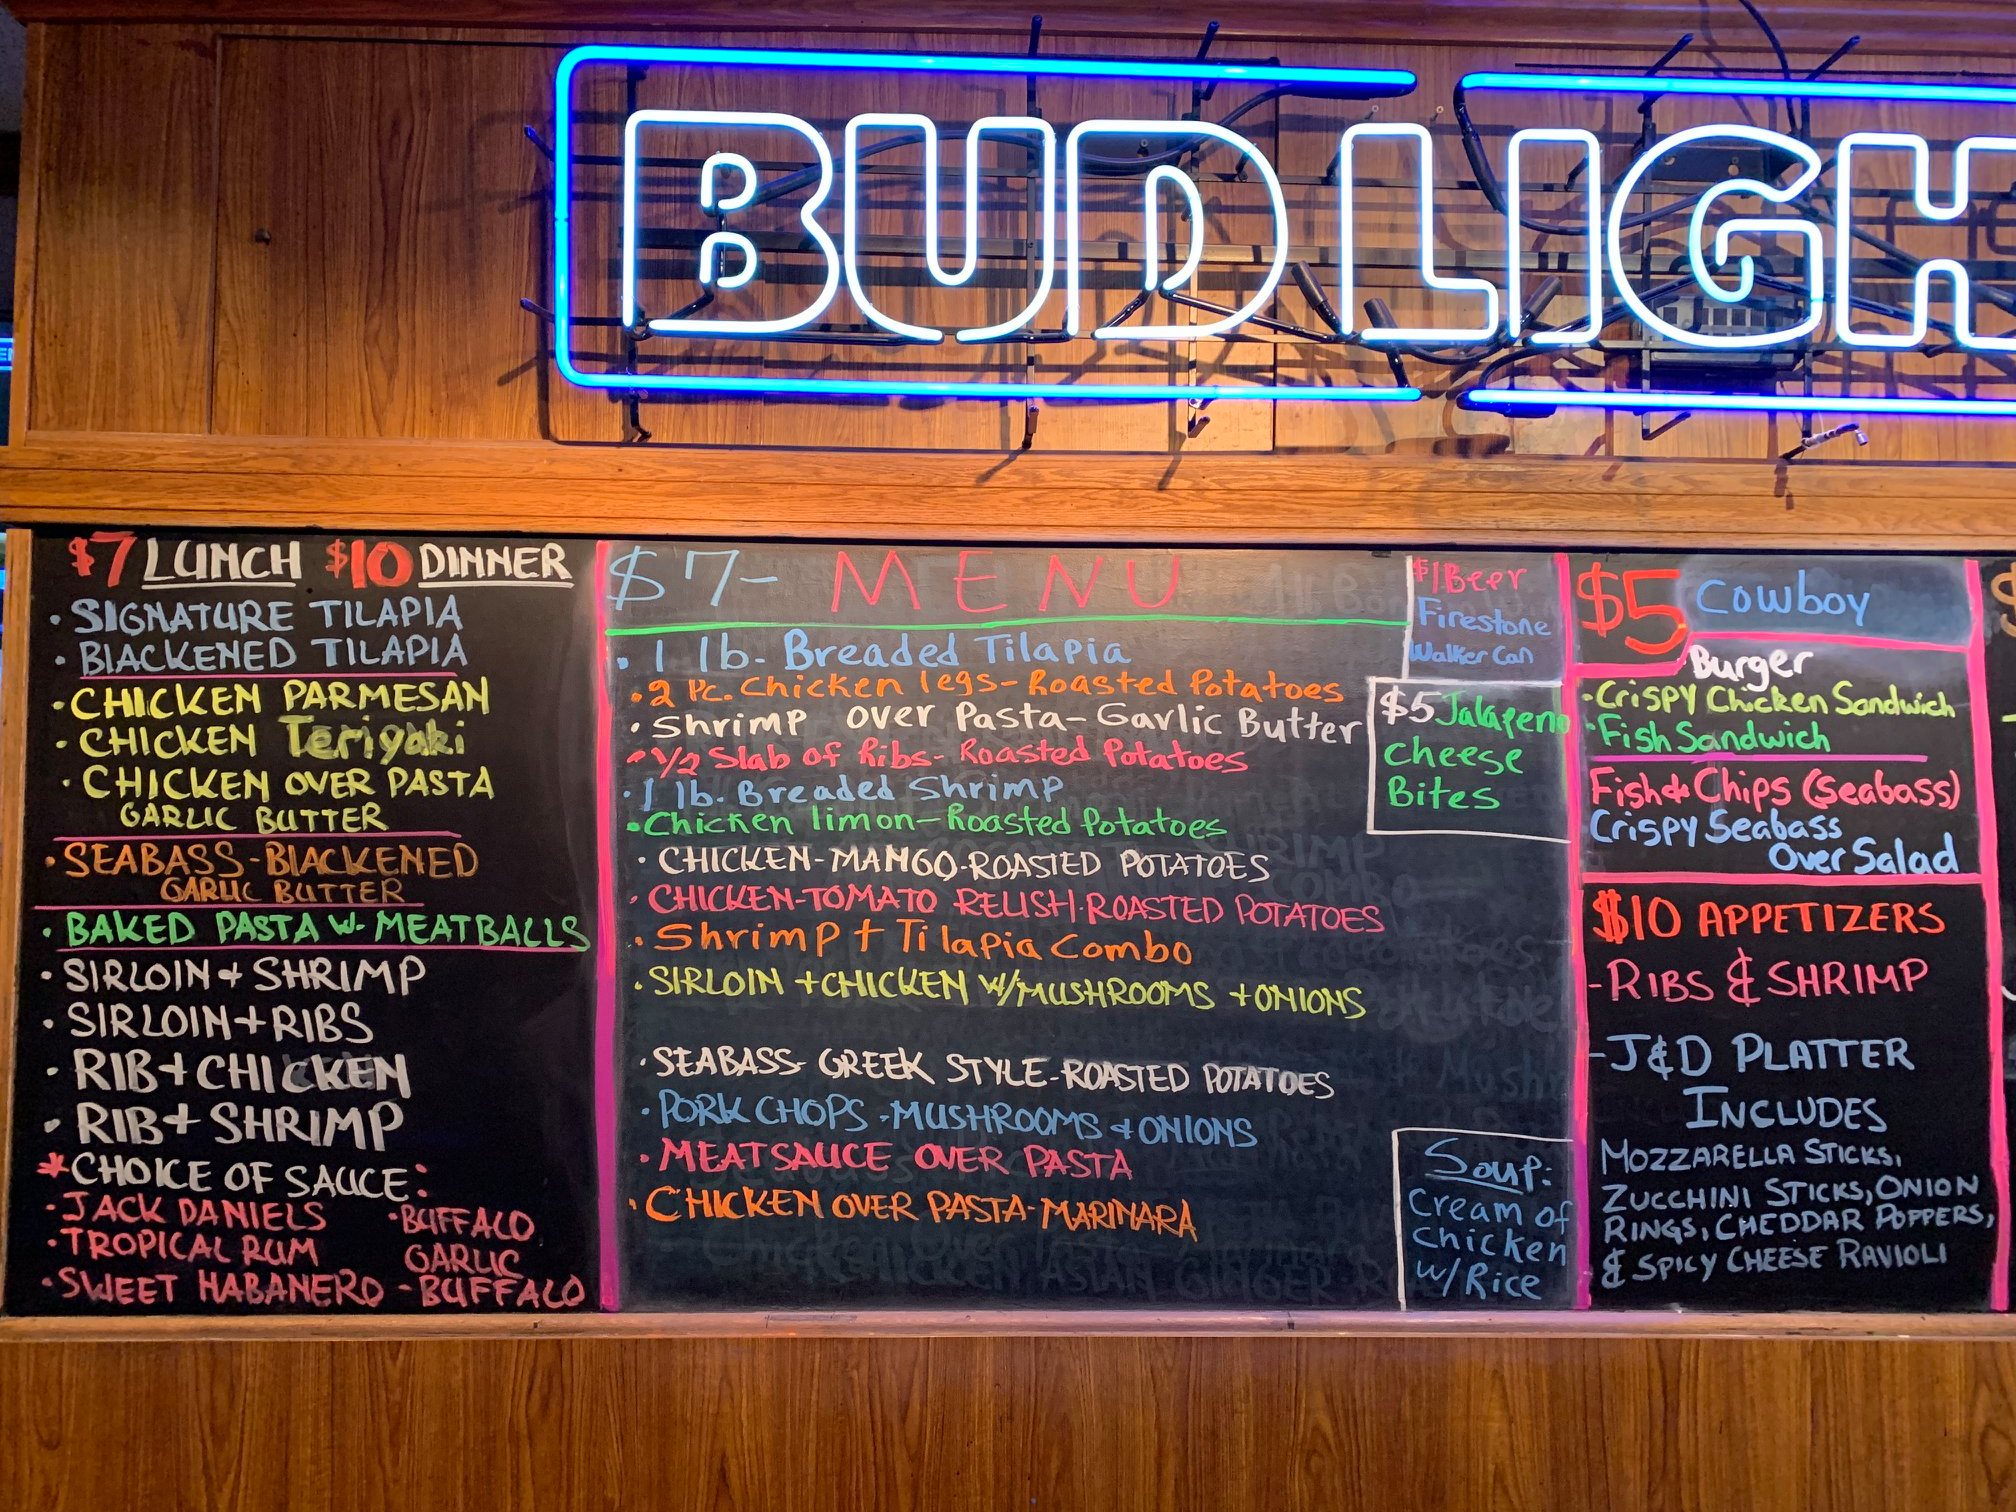 BUD LIGH
$7 LUNCH $10 DINNER
• SIGNATURE TILAPIA
• BLACKENED TILAPIA
• CHICKEN PARMESAN
• CHICKEN Teriyaki
• CHICKEN OVER PASTA
GARLIC BUTTER
• SEABASS-BLACKENED
GARLIC BUTTER
• BAKED PASTA W- MEATBALLS
• SIRLOIN + SHRIMP
• SIRLOIN + RIBS
• RIB + CHICKEN
• RIB + SHRIMP
*CHOICE OF SAUCE:
• JACK DANIELS
• TROPICAL RUM
• SWEET HABANERO
• BUFFALO
GARLIC
- BUFFALO
$7- MENU
• 1 lb. Breaded Tilapia
• 2 Pc. Chicken legs-Roasted Potatoes
• Shrimp over Pasta-Garlic Butter
• 1/2 Slab of Ribs- Roasted Potatoes
• 1 lb. Breaded Shrimp
• Chicken limon-Roasted Potatoes
• CHICKEN-MANGO-ROASTED POTATOES
• CHICKEN-TOMATO RELISH-ROASTED POTATOES
• Shrimp + Tilapia Combo
• SIRLOIN + CHICKEN W/MUSHROOMS + ONIONS
• SEABASS- GREEK STYLE-ROASTED POTATOES
• PORK CHOPS -MUSHROOMS & ONIONS
• MEATSAUCE OVER PASTA
• CHICKEN OVER PASTA-MARINARA
$1 Beer
Firestone
Walker Can
$5 Jalapeno
Cheese
Bites
Soup:
Cream of
Chicken
w/Rice
$5 Cowboy
Burger
• Crispy Chicken Sandwich
• Fish Sandwich
Fish & Chips (Seabass)
Crispy Seabass
Over Salad
$10 APPETIZERS
- RIBS & SHRIMP
- J&D PLATTER
INCLUDES
MOZZARELLA STICKS,
ZUCCHINI STICKS, ONION
RINGS, CHEDDAR POPPERS,
& SPICY CHEESE RAVIOLI